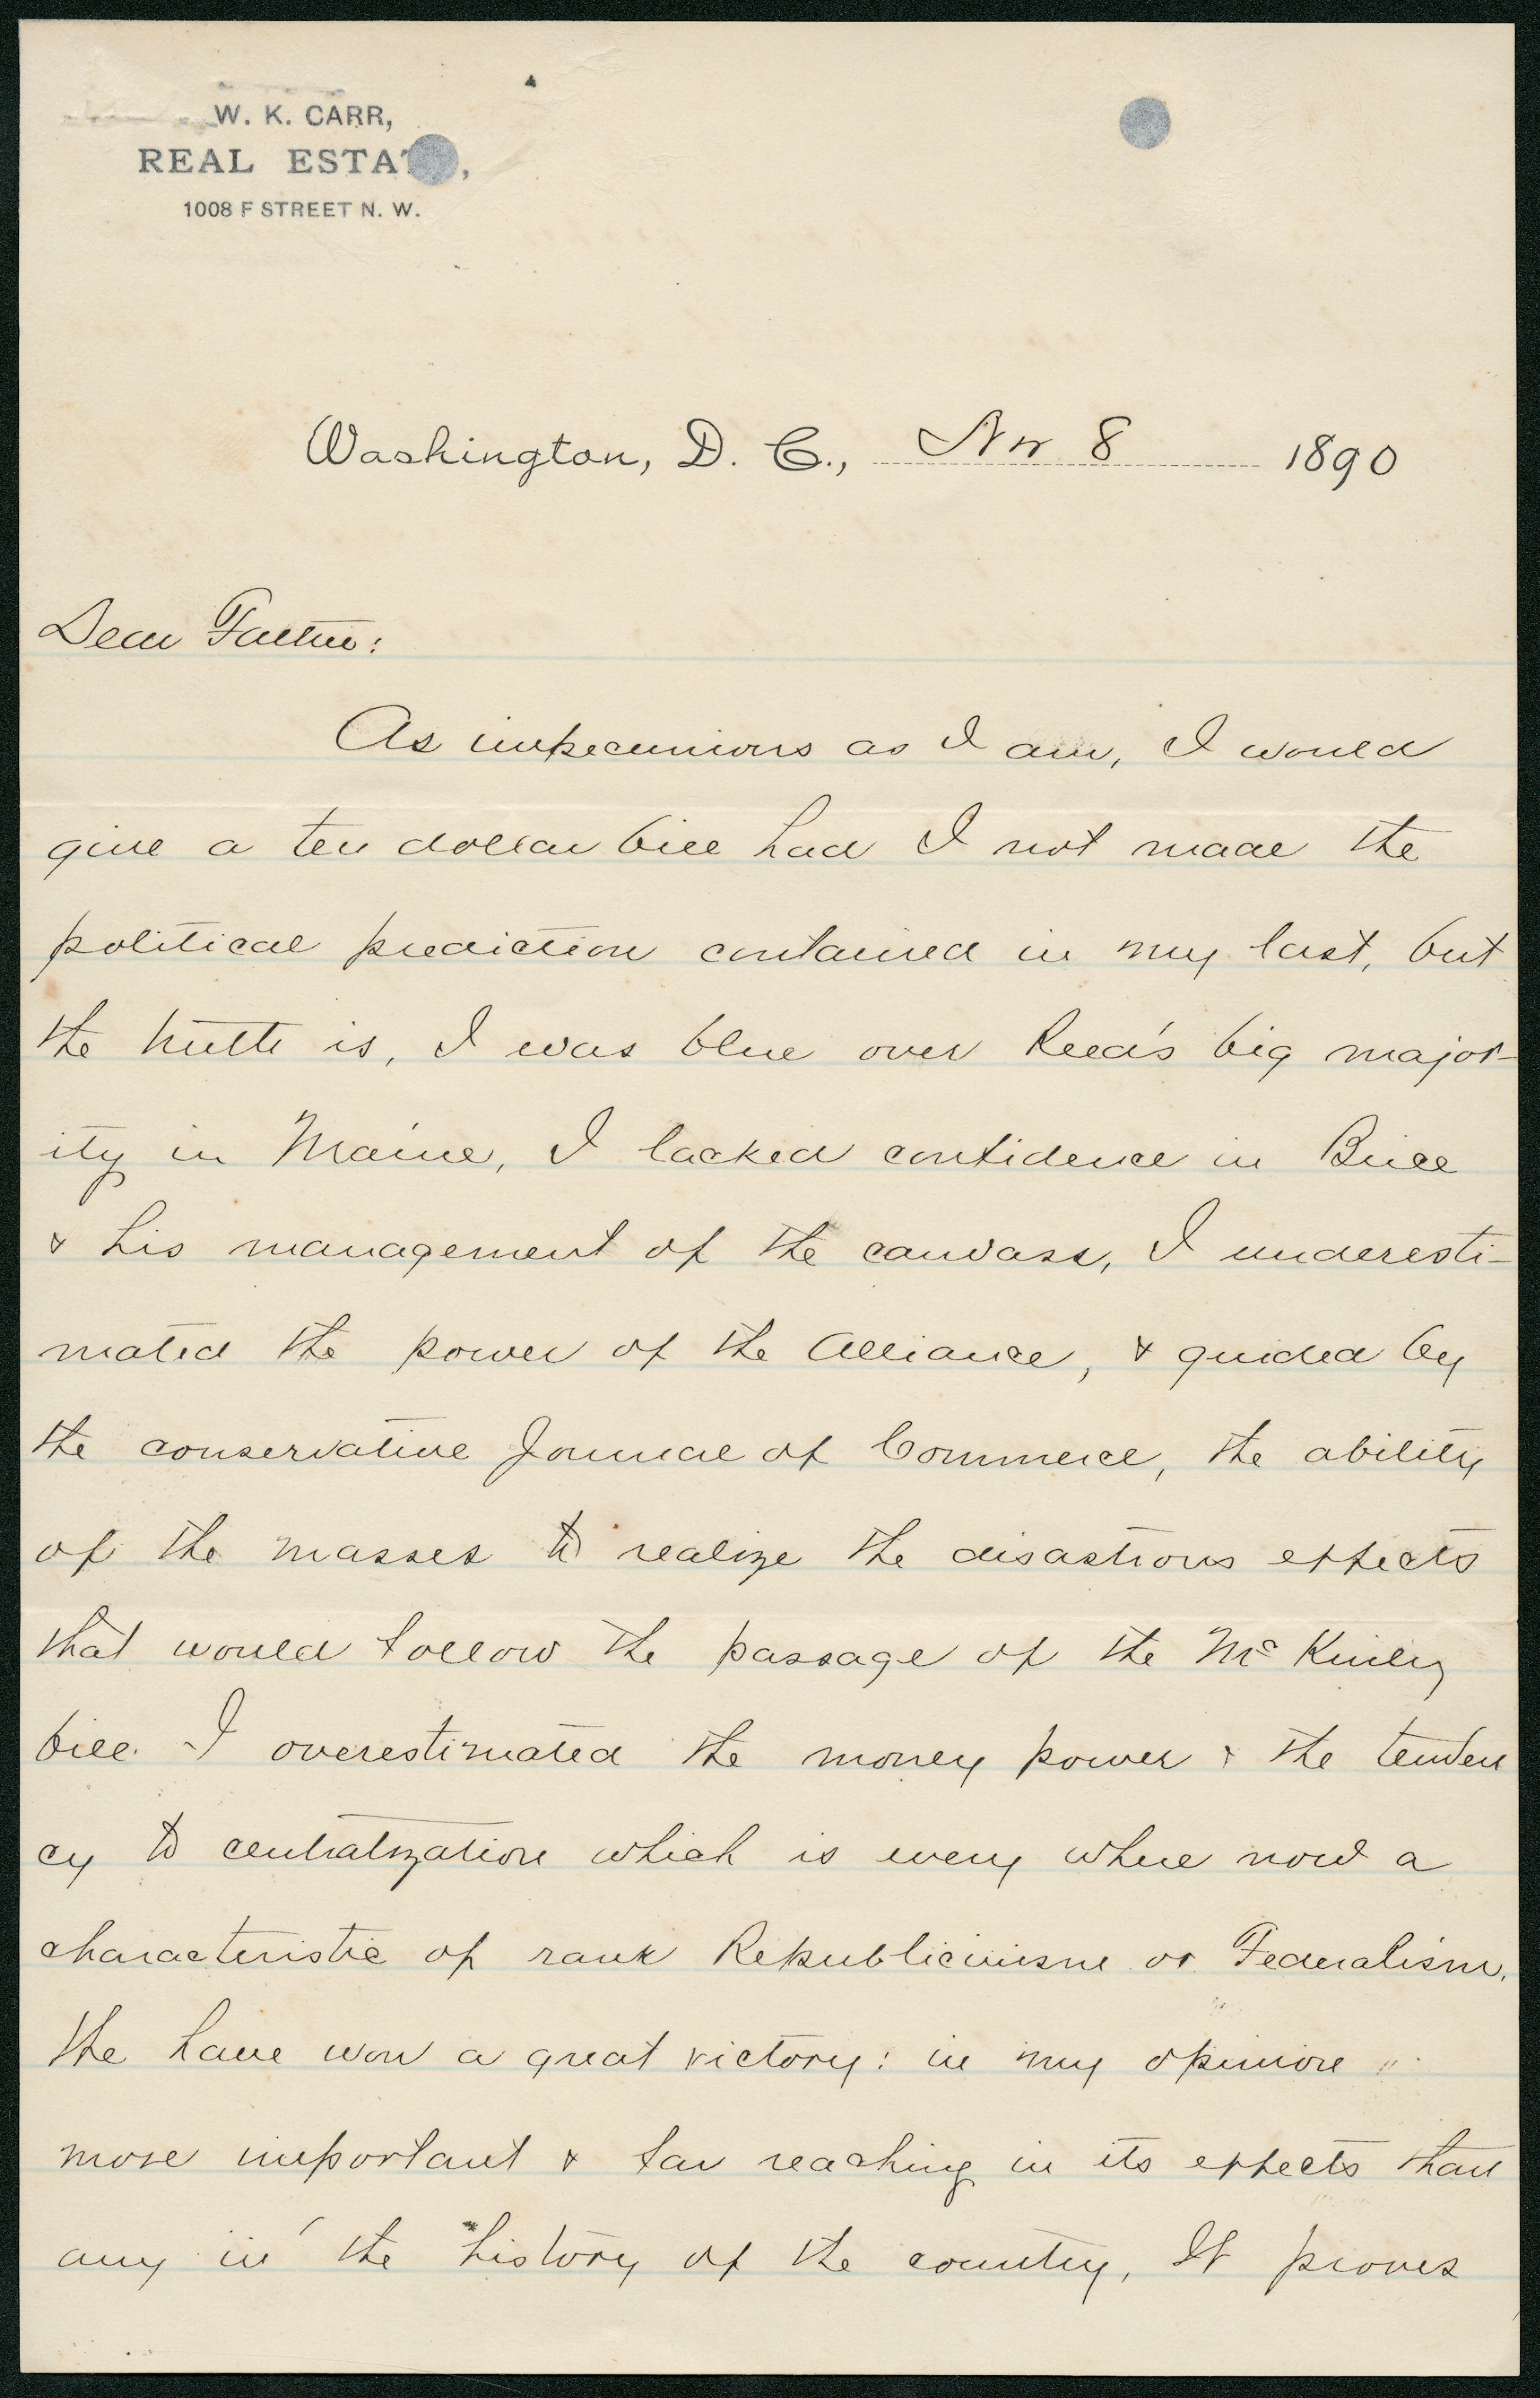 W. K. CARR,
REAL ESTATE,
1008 F STREET N. W.
Washington, D. C., Nov 8 1890
Dear Father:
As impecunious as I am, I would
give a ten dollar bill had I not made the
political prediction contained in my last, but
the truth is, I was blue over Reed's big major-
ity in Maine, I lacked confidence in Brice
& his management of the canvass, I underesti-
mated the power of the Alliance, & guided by
the conservative Journal of Commerce, the ability
of the masses to realize the disastrous effects
that would follow the passage of the McKinley
bill. I overestimated the money power & the tenden
cy to centralization which is every where now a
characteristic of rank Republicanism or Federalism.
The have won a great victory: in my opinion
more important & far reaching in its effects than
any in the history of the country, It proves